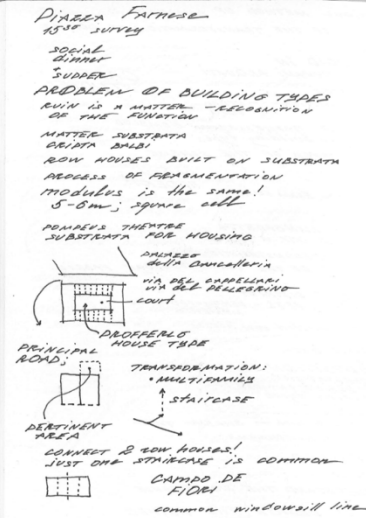 PIAZZA FARNESE
15:30 SURVEY
SOCIAL
dinner
SUPPER
PROBLEM OF BUILDING TYPES
RUIN IS A MATTER - RECOGNITION
OF THE FUNCTION
MATTER SUBSTRATA
CRIPTA BALBI
ROW HOUSES BUILT ON SUBSTRATA
PROCESS OF FRAGMENTATION
modulus is the same!
5-6m; square cell
POMPEUS THEATRE
SUBSTRATA FOR HOUSING
PALAZZO
della Cancelleria
VIA DEL CAPPELLARI
VIA DEL PELLEGRINO
court
PROFFERLO
HOUSE TYPE
PRINCIPAL
ROAD;
TRANSFORMATION:
• MULTIFAMILY
STAIRCASE
PERTINENT
AREA
CONNECT 2 ROW HOUSES!
JUST ONE STAIRCASE IS COMMON
CAMPO DE
FIORI
common windowsill line